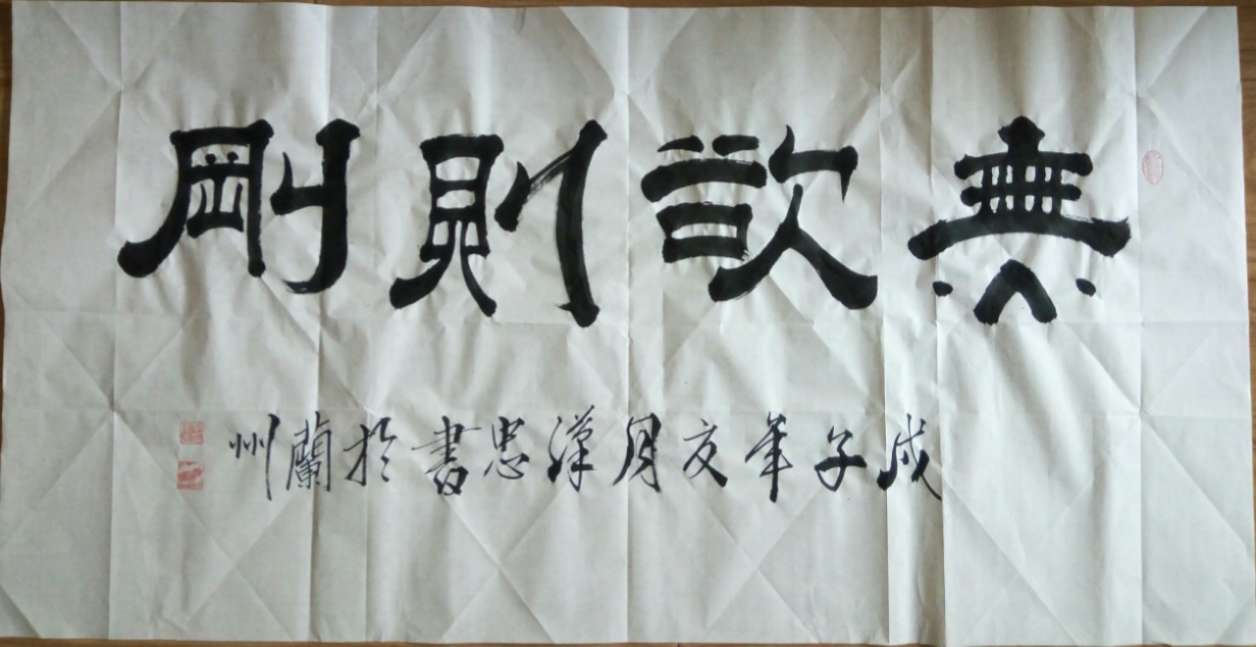 無欲則剛
戊子年夏月漢忠書於蘭州